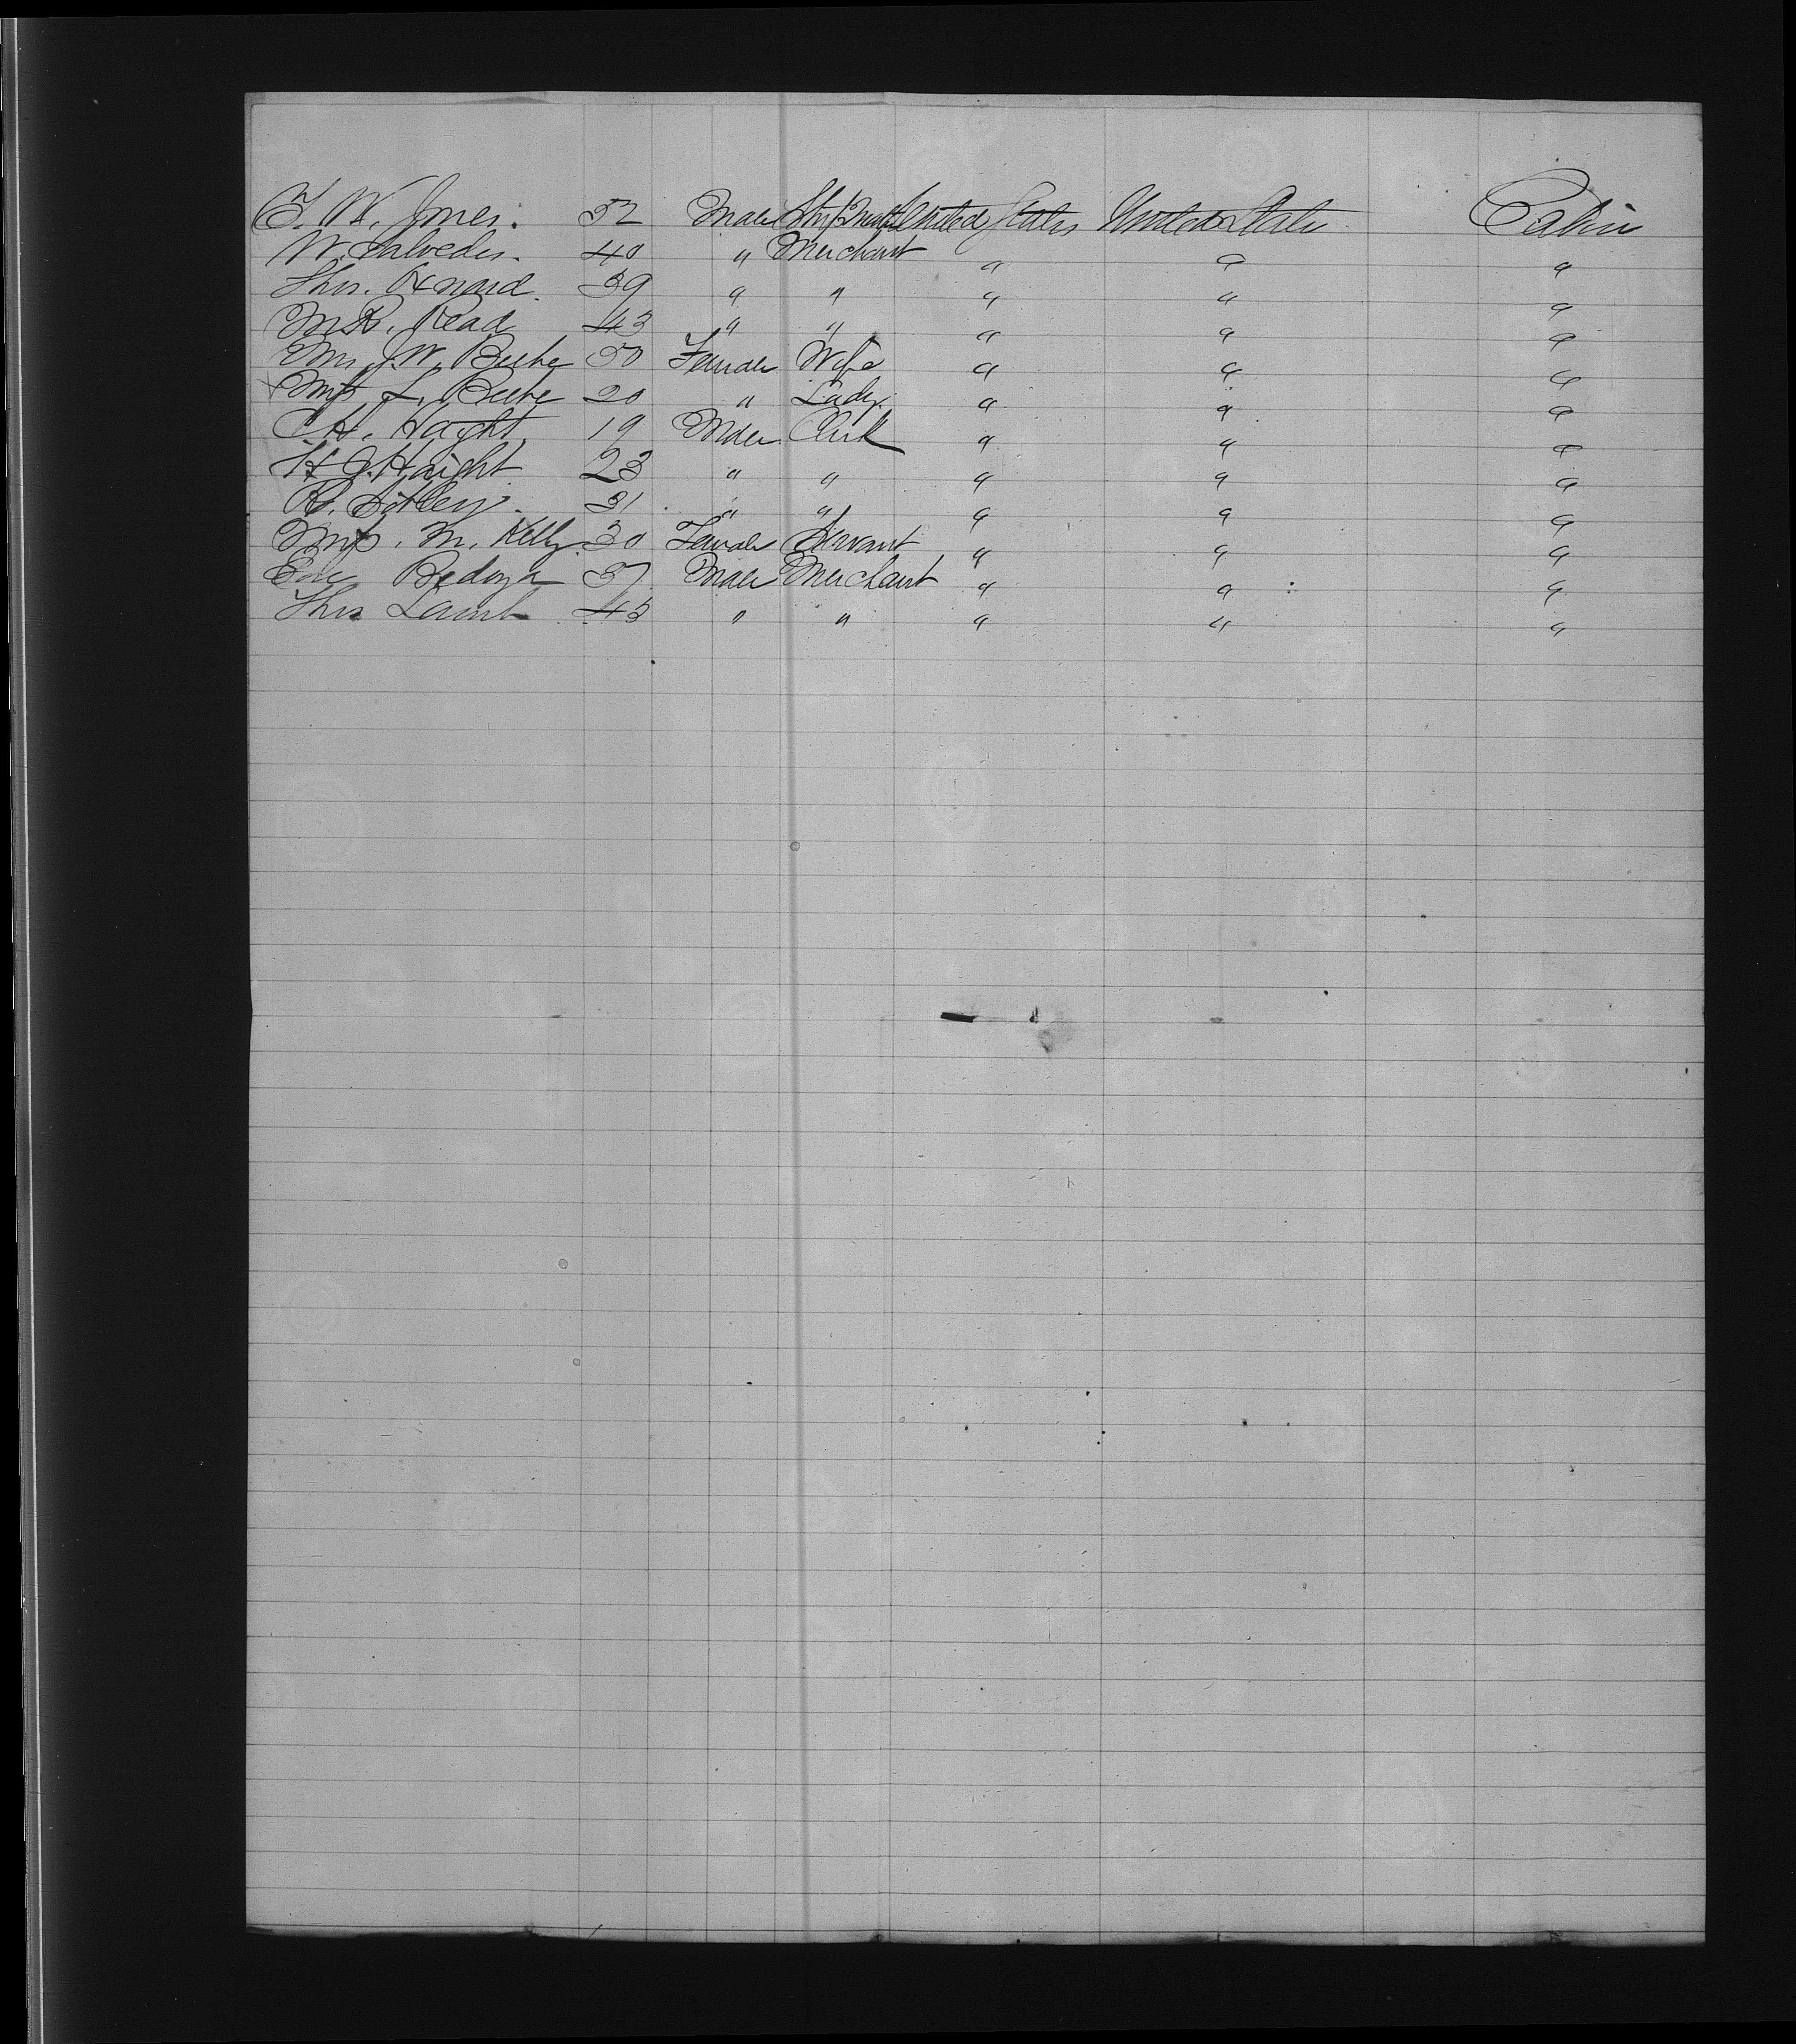 T. W. Jones. 52 Male Ship Master United States United States Cabin
W. Salvedes. 40 " Merchant " " "
Thos. 39 " " " " "
M R. Read 43 " " " " "
Mrs J. W. Beebe 50 Female Wife " " "
Miss L. Beebe 20 " Lady " " "
C H. Haight 19 Male Clerk " " "
H G. Haight 23 " " " " "
R. 31 " " " " "
Miss. M. Kelly 30 Female Servant " " "
Bedoya 37 Male Merchant " " "
Thos Lamb 43 " " " " "